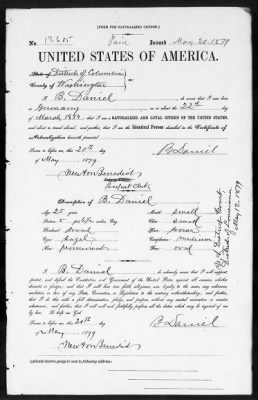 [FORM FOR NATURALIZED CITIZEN.]
No. 12615 Paid Issued May 20. 1879
UNITED STATES OF AMERICA.
State of District of Columbia
County of Washington
I, B. Daniel, do swear that I was born
in Germany on or about the 22nd day
of March 1854; that I am a NATURALIZED AND LOYAL CITIZEN OF THE UNITED STATES,
and about to travel abroad; and further, that I am the Identical Person described in the Certificate
of Naturalization herewith presented.
Sworn to before me, this 20th day
of May, 1879
B Daniel
Newton Benedict
Passport Clerk
Description of B. Daniel
Age: 25 years Mouth: small
Stature: 5 feet inches, Eng. Chin: small
Forehead: broad Hair: brown
Eyes: hazel Complexion: medium
Nose: prominent Face: oval
By District Court
District of Louisiana
May 12. 1879
I, B. Daniel, do solemnly swear that I will support,
protect, and defend the Constitution and Government of the United States against all enemies, whether
domestic or foreign; and that I will bear true faith, allegiance, and loyalty to the same, any ordinance,
resolution, or law of any State, Convention, or Legislature to the contrary notwithstanding; and further,
that I do this with a full determination, pledge, and purpose, without any mental reservation or evasion
whatsoever; and further, that I will well and faithfully perform all the duties which may be required of me
by law. So help me God.
Sworn to before me, this 20th day
of May, 1879
B Daniel
Newton Benedict
(*)please forward passport to the following address: